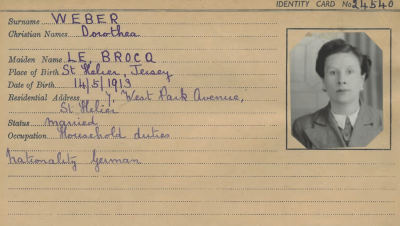 IDENTITY CARD No 24540
Surname WEBER
Christian Names Dorothea
Maiden Name LE BROCQ
Place of Birth St Helier, Jersey
Date of Birth 14/5/1913
Residential Address 7, West Park Avenue,
St Helier
Status married
Occupation Household duties
Nationality German